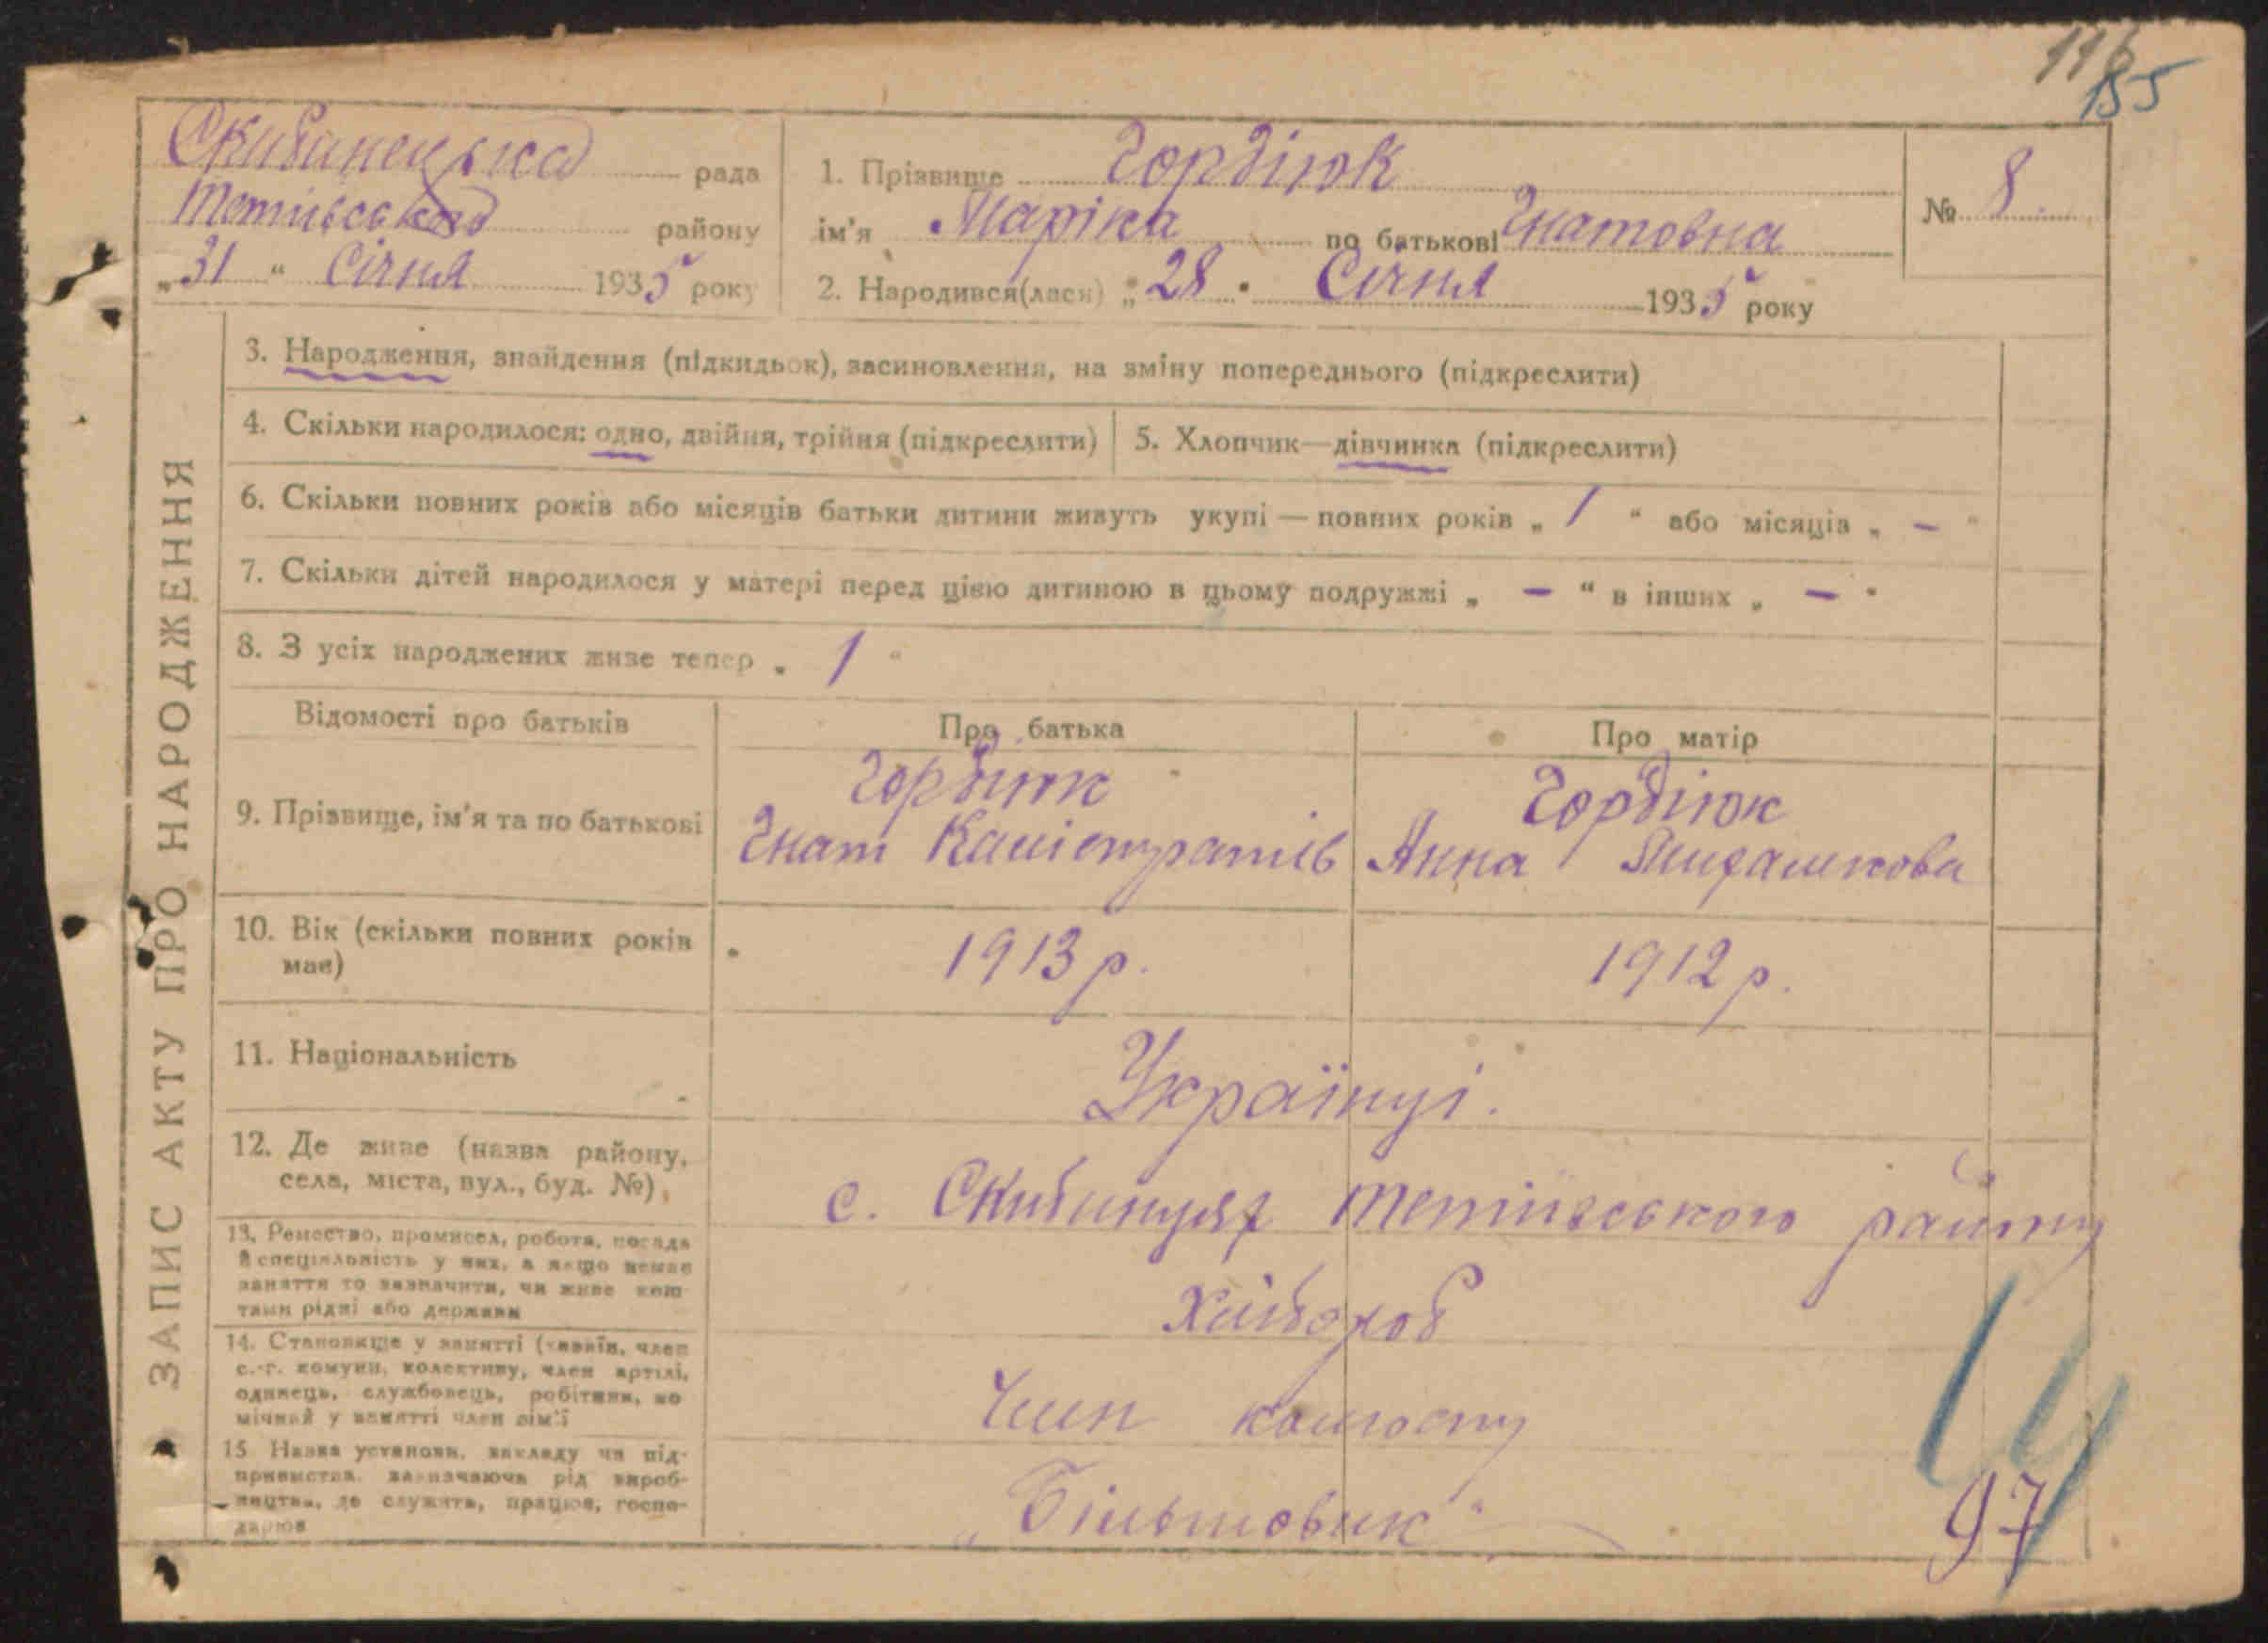 116
155
Скибинецька рада
Тетиївського району
„31“ Січня 1935 року
1. Прізвище Гордіюк
ім'я Маріка по батькові Гнатовна
2. Народився(лася) „28. Січня 1935 року
№ 8.
ЗАПИС АКТУ ПРО НАРОДЖЕННЯ
3. Народження, знайдення (підкидьок), засиновлення, на зміну попереднього (підкреслити)
4. Скільки народилося: одно, двійня, трійня (підкреслити) 5. Хлопчик—дівчинка (підкреслити)
6. Скільки повних років або місяців батьки дитини живуть укупі — повних років „ 1 “ або місяців „ – “
7. Скільки дітей народилося у матері перед цією дитиною в цьому подружжі „ – “ в інших „ – “
8. З усіх народжених живе тепер „ 1 “
Відомості про батьків Про батька Про матір
9. Прізвище, ім'я та по батькові
Гордіюк
Гнат
Гордіюк
Анна
10. Вік (скільки повних років
має)
1913 р. 1912 р.
11. Національність
Українці.
12. Де живе (назва району,
села, міста, вул., буд. №)
с. Скибинцях Тетиївського району
13. Ремество, промисел, робота, посада
й спеціяльність у них, а якщо немає
заняття то зазначити, чи живе кош-
тами рідні або держави
Хлібороб
14. Становище у занятті (хазяїн, член
с.-г. комуни, колективу, член артілі,
одинець, службовець, робітник, по
мічний у занятті член сім'ї
Член колгоспу
15 Назва установи, закладу чи під-
приємства, зазначаючи рід вироб-
ництва, де служить, працює, госпо-
дарює
„Більшовик“
97